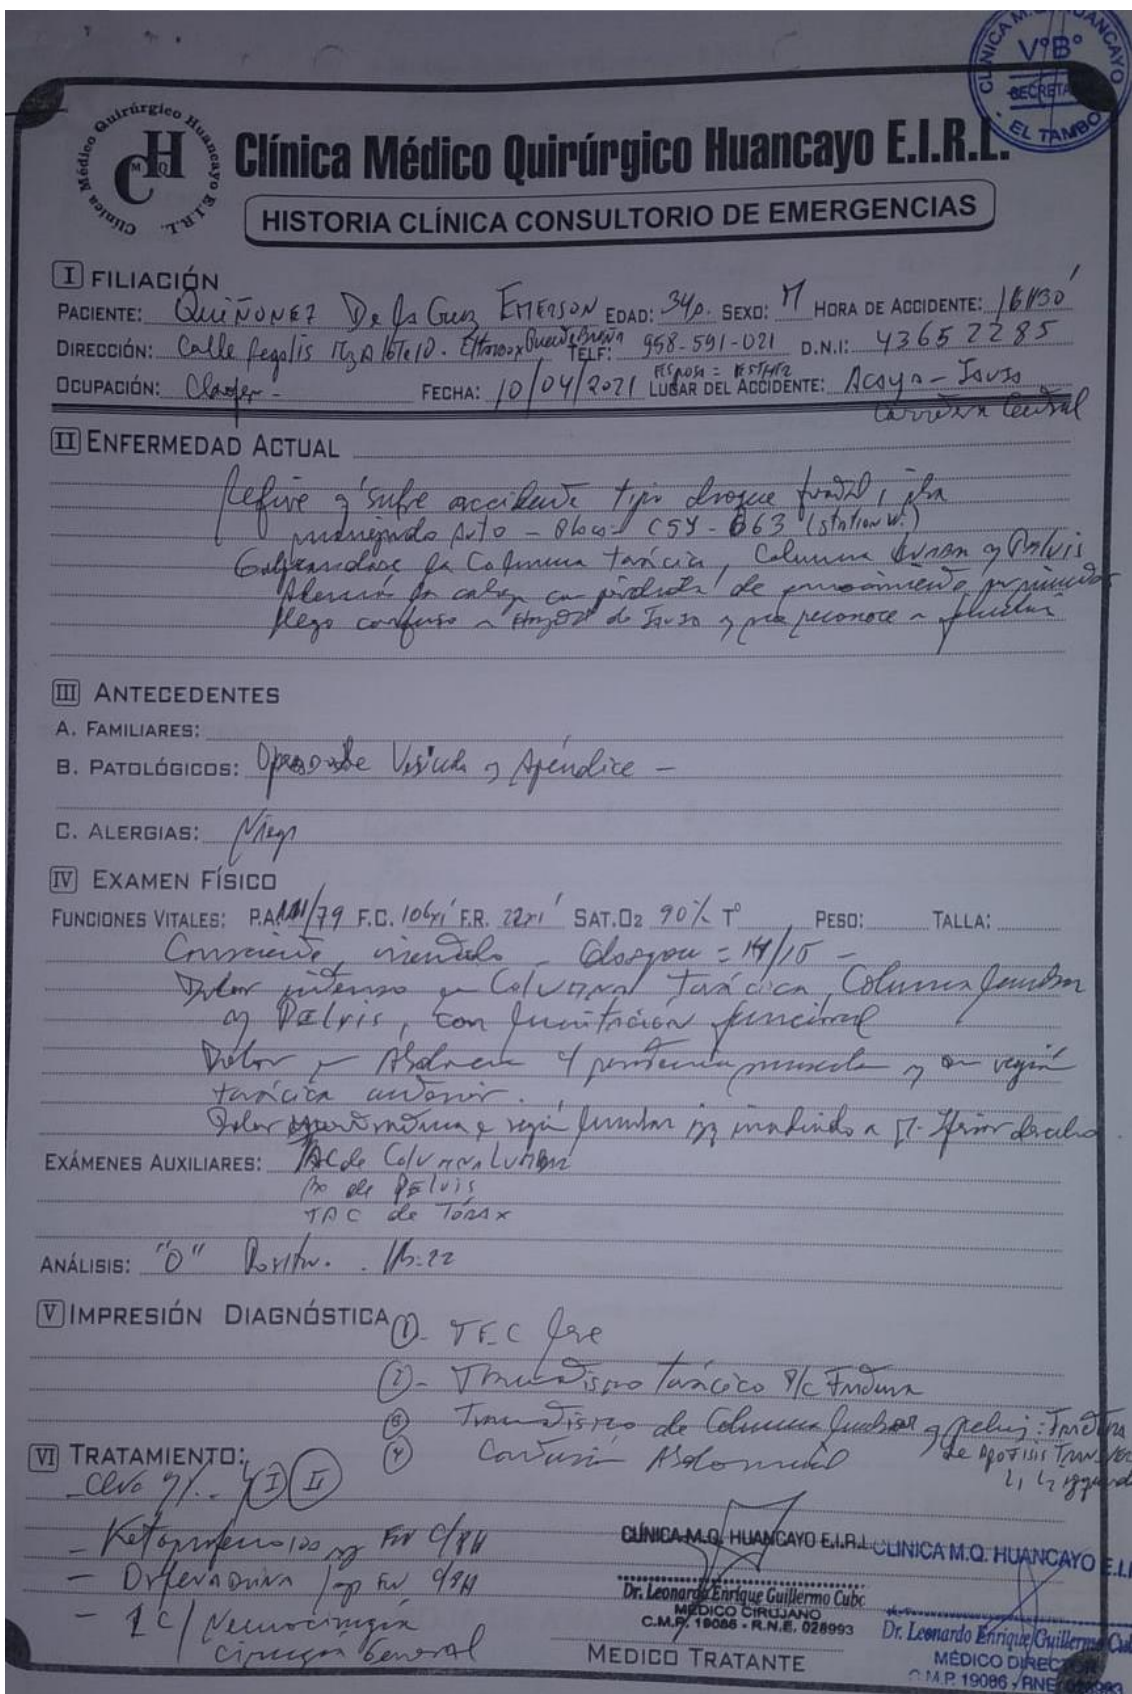 CLINICA M.Q. HUANCAYO
V°B°
SECRETA
EL TAMBO
Clínica Médico Quirúrgico Huancayo E.I.R.L.
CMQH
Clínica Médico Quirúrgico Huancayo E.I.R.L.
HISTORIA CLÍNICA CONSULTORIO DE EMERGENCIAS
I FILIACIÓN
PACIENTE: Quiñonez De la Cruz Emerson EDAD: 34 SEXO: M HORA DE ACCIDENTE: 16:30'
DIRECCIÓN: Calle TELF: 958-591-021 D.N.I: 43652285
Esposa = Esther
OCUPACIÓN: Chofer - FECHA: 10/04/2021 LUGAR DEL ACCIDENTE: Acaya - Jauja
Carretera Central
II ENFERMEDAD ACTUAL
Refiere q' sufre accidente tipo choque frontal, iba
manejando Auto - Placa C5Y-863 (Station W.)
la Columna torácica, Columna lumbar y Pelvis
Además la cabeza con pérdida de
llego confuso a de Jauja y reconoce a
III ANTECEDENTES
A. FAMILIARES:
B. PATOLÓGICOS: Operado de Vesicula y Apéndice -
C. ALERGIAS: Niega
IV EXAMEN FÍSICO
FUNCIONES VITALES: P.A /79 F.C. 106x' F.R. 22x' SAT.O2 90% T° PESO: TALLA:
Consciente, orientado - Glasgow = 14/15 -
Dolor intenso en Columna Torácica, Columna lumbar
y Pelvis, con limitación funcional
Dolor en Abdomen y muscular y en región
torácica anterior.
Dolor región lumbar izq irradiando a
EXÁMENES AUXILIARES: TAC de Columna Lumbar
Rx de Pelvis
TAC de Tórax
ANÁLISIS: "O" Positivo. Hb: 22
V IMPRESIÓN DIAGNÓSTICA
① - TEC leve
② - Traumatismo torácico D/c Fractura
③ Traumatismo de Columna lumbar y pelvis: Fractura
de Apofisis Transver
L1 L2 izquierda
④ Contusión Abdominal
VI TRATAMIENTO:
- ClNa 9‰ I II
- Ketoprofeno 100 mg EV C/8H
- Orfenadrina 1 amp EV C/8H
- IC/ Neurocirugía
Cirugía General
CLÍNICA M.Q. HUANCAYO E.I.R.L.
Dr. Leonardo Enrique Guillermo Cubc
MÉDICO CIRUJANO
C.M.P. 19086 - R.N.E. 028993
MEDICO TRATANTE
CLINICA M.Q. HUANCAYO E.I.
Dr. Leonardo Enrique Guillermo Cub
MÉDICO DIRECTOR
C.M.P. 19086 - RNE 028993